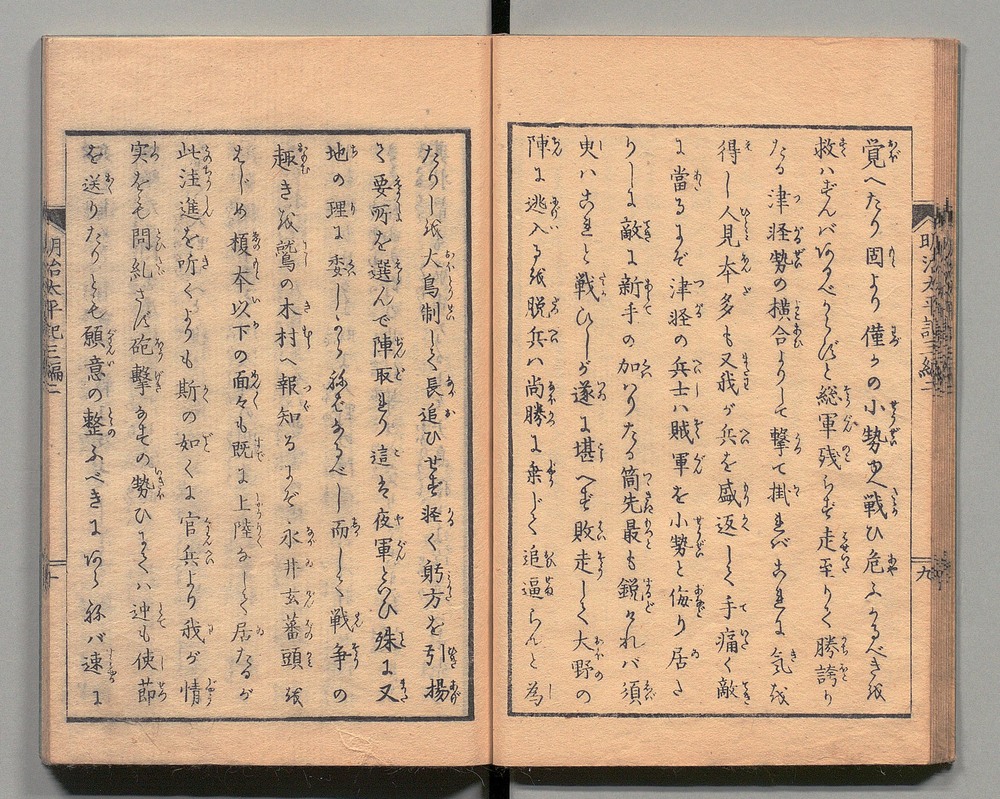 覚へたり固より僅かの小勢ゆへ戦ひ危ふかるべきを
救はずんバあるべからずと総軍残らず走至りて勝誇り
たる津軽勢の横合よりして撃て掛れバこれに気を
得し人見本多も又我が兵を盛返して手痛く敵
に當るにぞ津軽の兵士ハ賊軍を小勢と侮り居た
りしに敵に新手の加ハりたる筒先最も鋭けれバ須
臾ハこれと戦ひしが遂に堪へず敗走して大野の
陣に逃入るを脱兵ハ尚勝に乗じて追逼らんと為
たりしを大鳥制して長追ひせず軽く躬方を引揚
て要所を選んで陣取れり這は夜軍といひ殊に又
地の理に委しからねバなるべし而して戦争の
趣きを鷲の木村へ報知るにぞ永井玄蕃頭を
はじめ榎本以下の面々も既に上陸なして居たるが
此注進を听くよりも斯の如くに官兵より我が情
実をも問糺さず砲撃なすの勢ひにてハ迚も使節
を送りたりとも願意の整ふべきにあらねバ速に
明治太平記三編二
九
明治太平記三編二
十